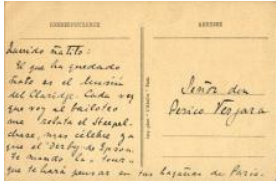 CORRESPONDANCE
ADRESSE
Querido Ñatito:
El que ha quedado
es el
del Claridge. Cada vez
que voy al bailoteo
me el Steepel-
chase, mas célebre ya
que el Derby de Epson.
Te mando la "tour"
que te hará pensar en tus hazañas de Paris.
Señor don
Perico Vergara